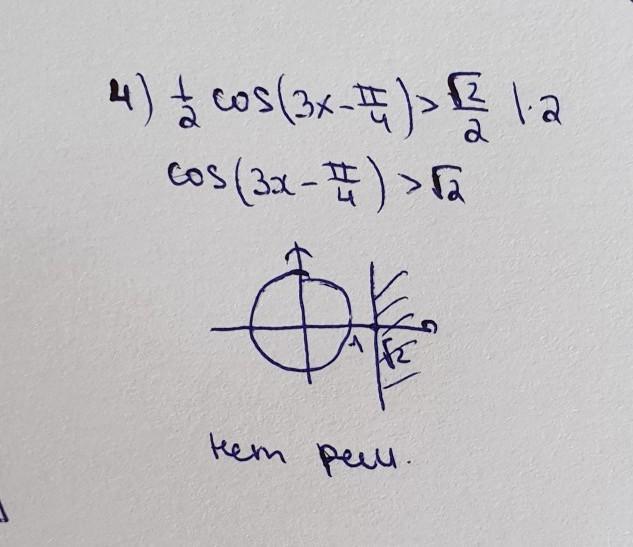 4) 1/2 cos(3x - π/4) > √2/2 | · 2
cos(3x - π/4) > √2
1 √2
нет реш.